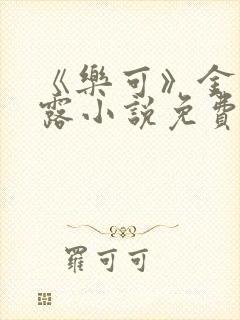 《樂可》金
露小說免費
羅可可